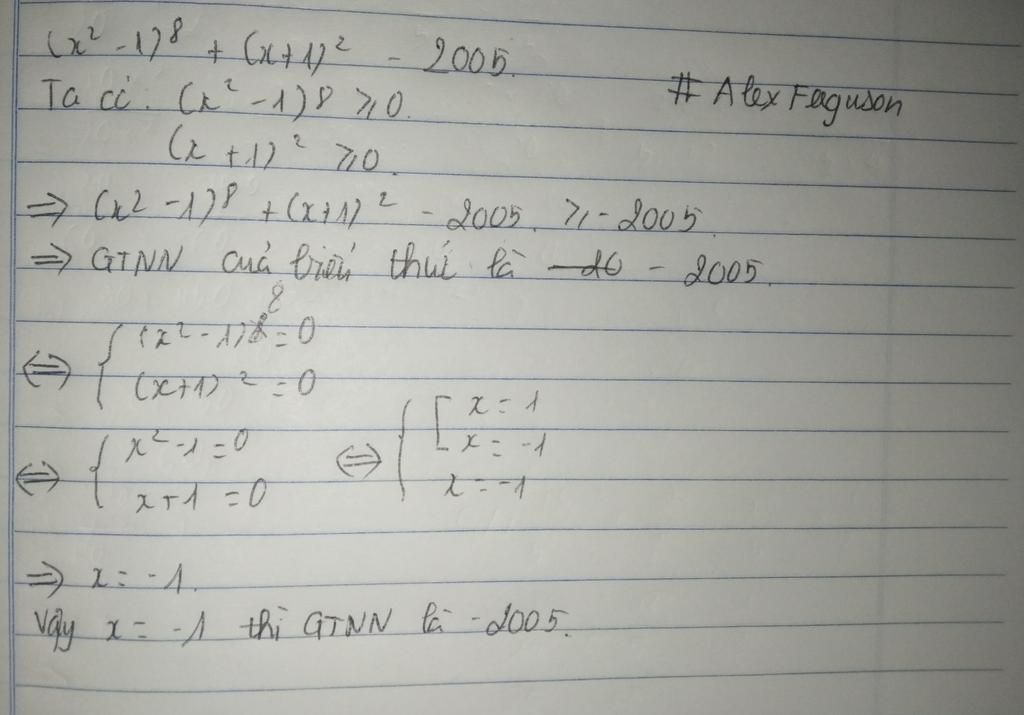 (x² - 1)⁸ + (x+1)² - 2005.
Ta có. (x² - 1)⁸ ⩾ 0.
# Alex Faguson
(x + 1)² ⩾ 0.
⇒ (x² - 1)⁸ + (x+1)² - 2005. ⩾ - 2005.
⇒ GTNN của biểu thức là - 2005.
⇔ { (x² - 1)⁸ = 0
(x+1)² = 0
⇔ { x² - 1 = 0
x + 1 = 0
⇔ { [ x = 1
x = -1
x = -1
⇒ x = -1.
Vậy x = -1 thì GTNN là -2005.